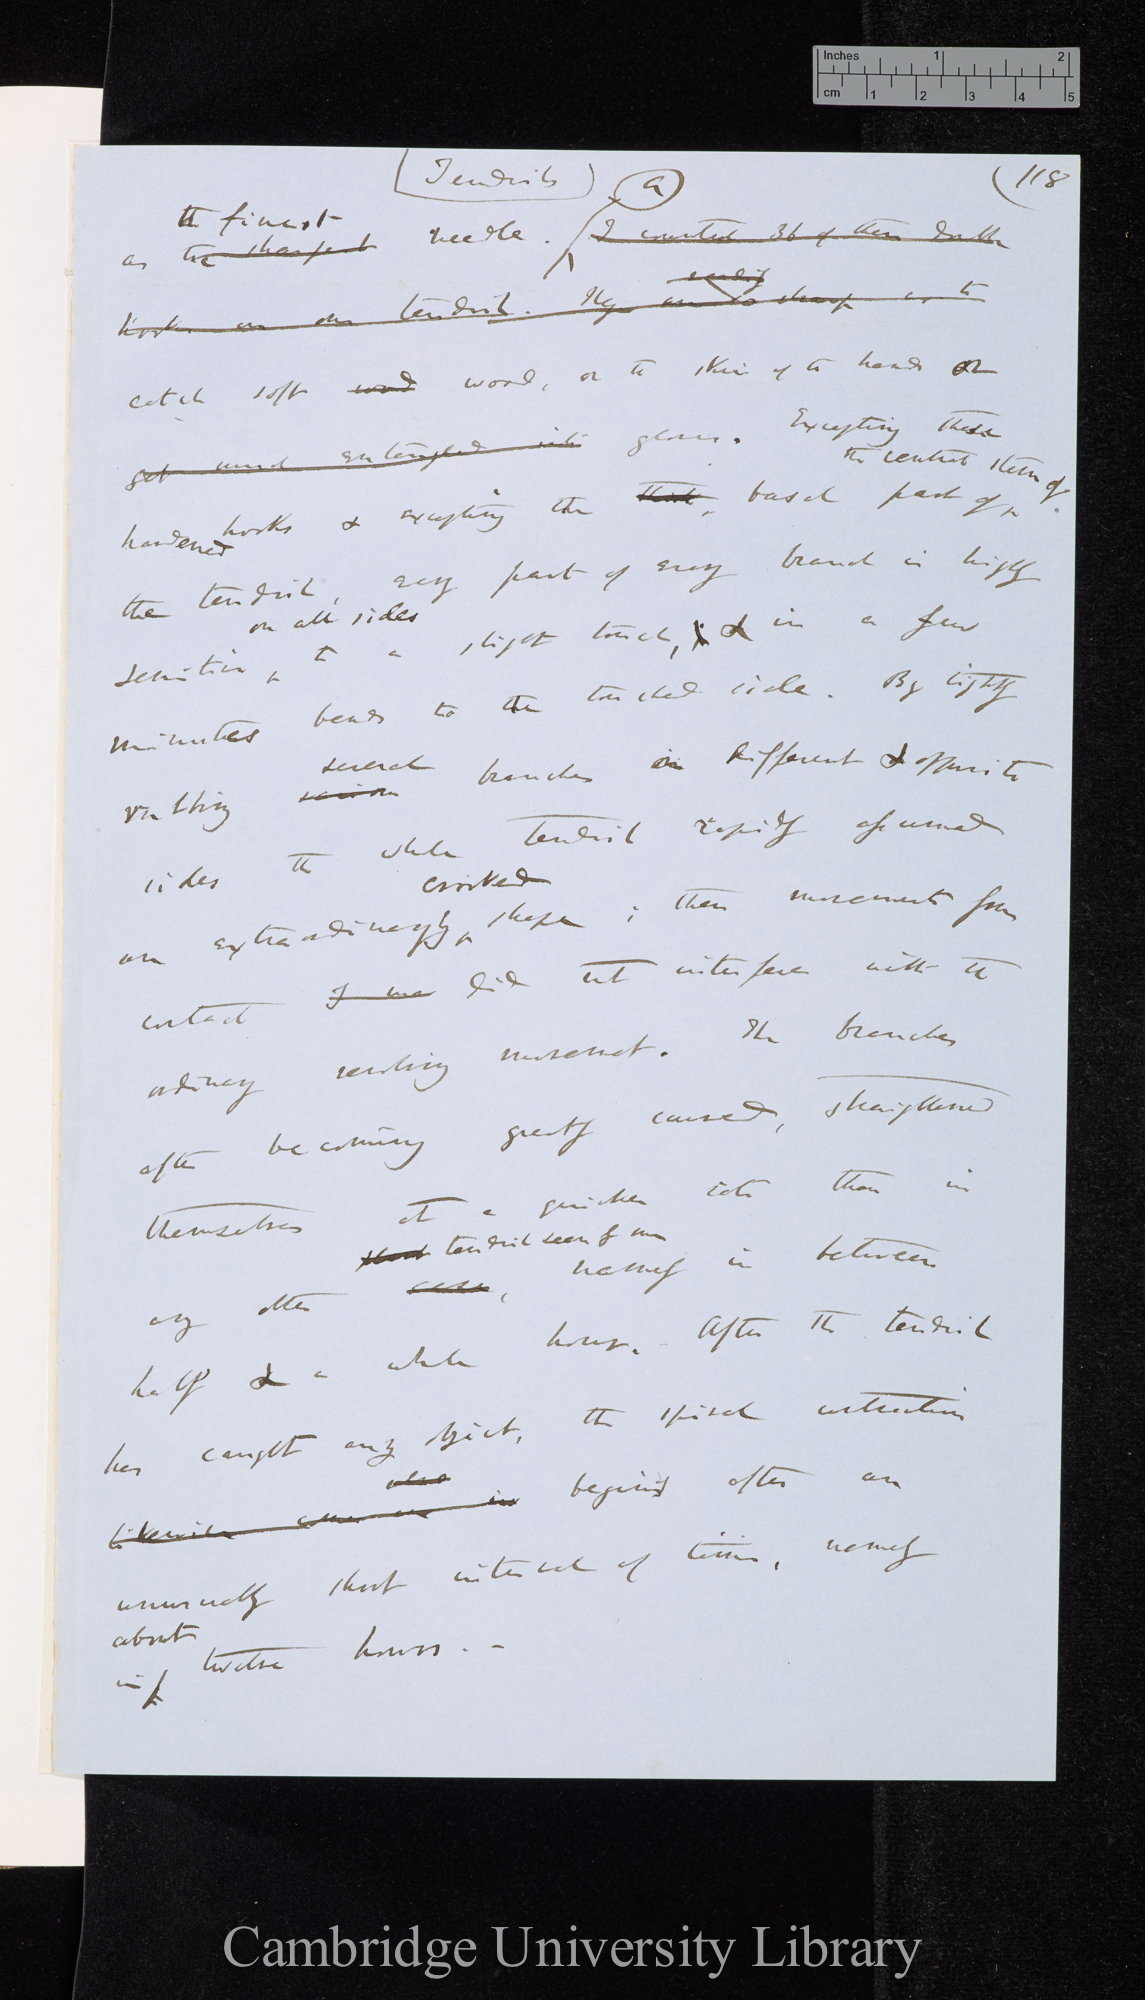 Inches 1 2
cm 1 2 3 4 5
(Tendrils) a (118
the finest
as the sharpest needle. I counted 36 of these double
readily
hooks on one tendril. They are so sharp as to
catch soft wood wood, or the skin of the hands or
get much entangled into gloves. Excepting these
the central stem of
hardened hooks & excepting the basal part of
the tendril, every part of every branch is highly
on all sides
sensitive, to a slight touch, & in a few
minutes bends to the touched side. By lightly
several
rubbing various branches on different & opposite
sides the whole tendril rapidly assumed
crooked
an extraordinaryly shape; these movements from
contact I was did not interfere with the
ordinary revolving movement. The branches
after becoming greatly curved, straightened
themselves at a quicker rate than in
tendril seen by me
any other case, namely in between
half & a whole hour. After the tendril
has caught any object, the spiral contraction
also
likewise comes on in begins after an
unusually short interval of time, namely
about
in twelve hours. -
Cambridge University Library